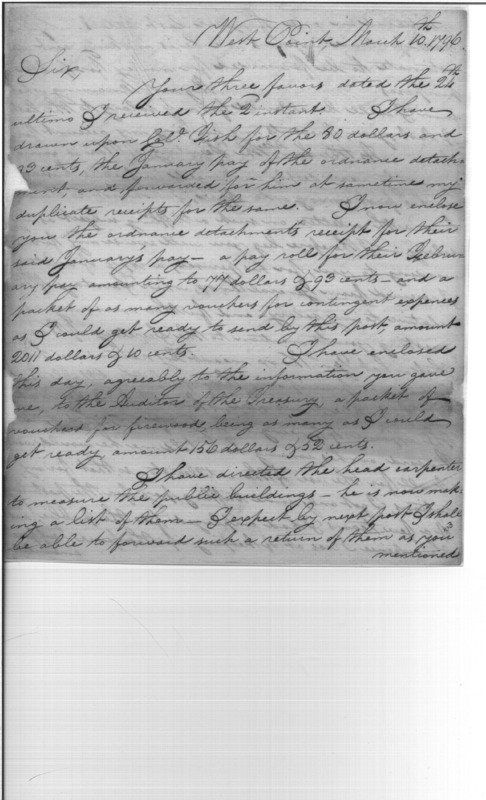 West Point, March 10.th 1796.
Sir,
Your three favors dated the 24th
ultimo I received the 2 instant. I have
drawn upon Fish for the 80 dollars and
93 cents, the January pay of the ordnance detach-
ment, and forwarded for him at sametime my
duplicate receipts for the same. I now enclose
you the ordnance detachments receipt for their
said January's pay — a pay roll for their Febru-
ary pay amounting to 77 dollars & 93 cents — and a
packet of as many vouchers for contingent expences
as I could get ready to send by this post, amount
2011 dollars & 10 cents. I have enclosed
this day, agreeably to the information you gave
me, to the Auditor of the Treasury, a packet of
vouchers for firewood being as many as I could
get ready, amount 156 dollars & 52 cents.
I have directed the head carpenter
to measure the public buildings — he is now mak-
ing a list of them — I expect by next post I shall
be able to forward such a return of them as you
mentioned